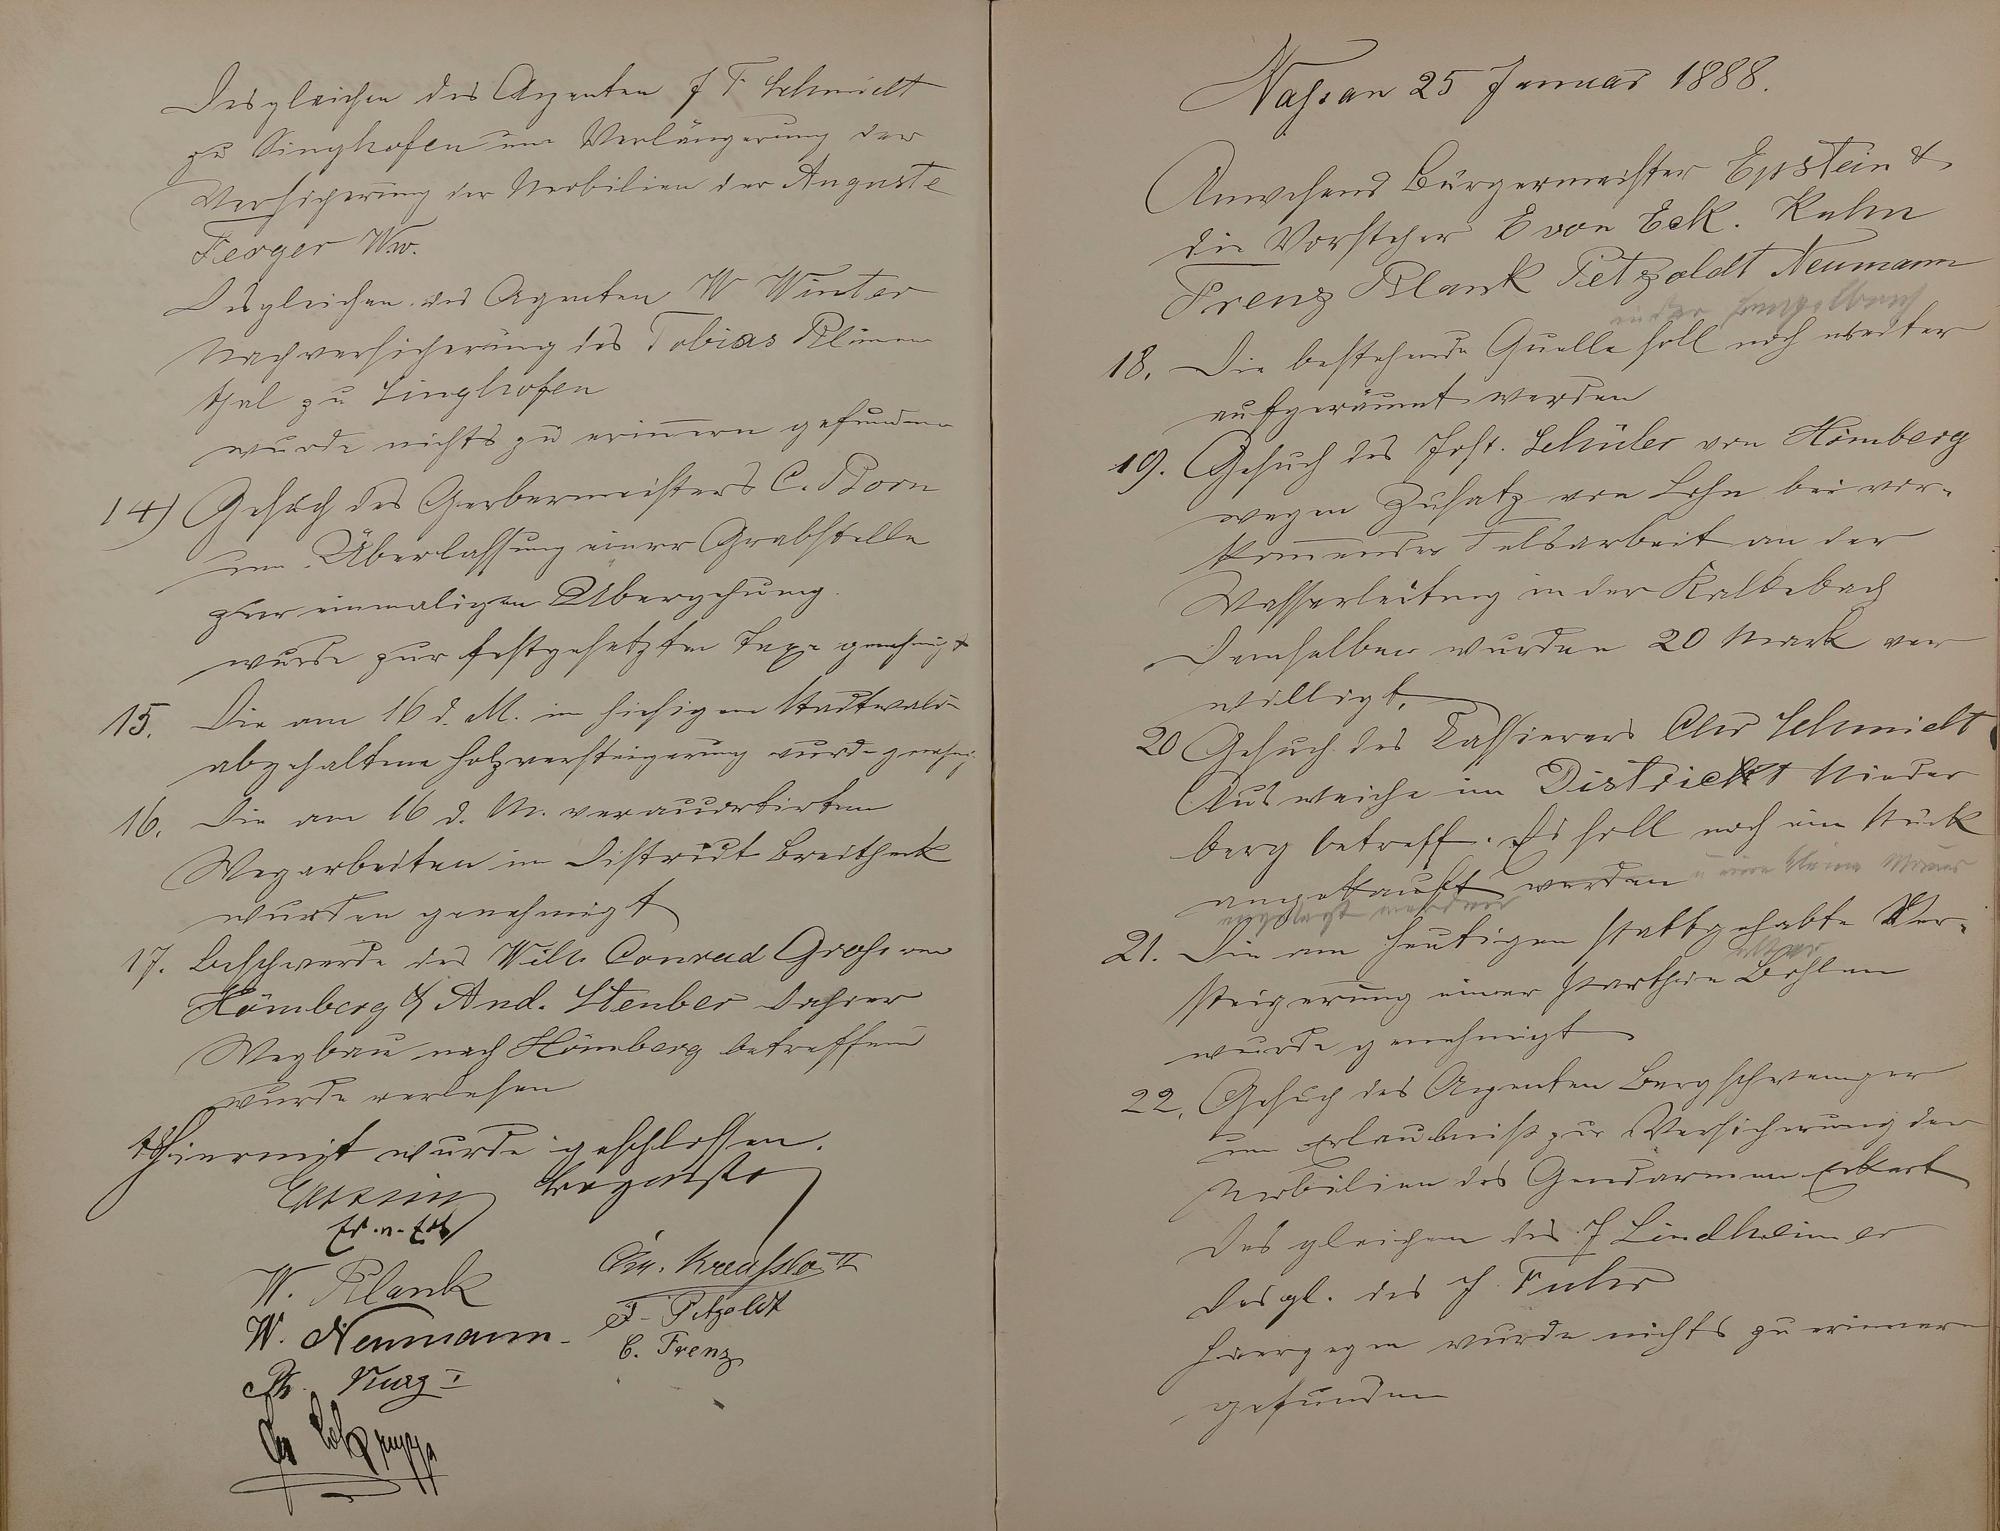 Desgleichen des Agenten J F Schmidt
zu Singhofen um Verlängerung der
Versicherung der Mobilien der Auguste
Ferger Ww.
Desgleichen des Agenten W Winter
Nachversicherung des Tobias Blumen
thal zu Singhofen
wurde nichts zu erinnern gefunden
14) Gesuch des Gerbermeisters C. Born
um Überlassung einer Grabstelle
zur einmaligen Übergehung.
wurde zur festgesetzten Taxe genehmigt
15. Die am 16 d. M. im hiesigen Stadtwald
abgehaltene Holzversteigerung wurde genehmig
16. Die am 16 d. M. veraccordirten
Wegarbeiten im District Breitheck
wurden genehmigt
17. Beschwerde des Wilh. Conrad Groß von
Hömberg & And. Steuber daher
Wegbau nach Hömberg betreffend
wurde verlesen
Hiermit wurde geschlossen.
Epstein
W. Blank
W. Neumann
F. Petzoldt
Ph. Kurz I
C. Frenz
Nassau 25 Januar 1888.
Anwesend Bürgermeister Epstein &
die Vorsteher E von Eck. Kuhn
Frenz Blank Petzoldt Neumann
in der
18. Die bestehende Quelle soll noch weiter
aufgeräumt werden
19. Gesuch des Jost. Schüler von Hömberg
wegen Zusatz von Lohn bei vor-
kommender Felsarbeit an der
Wasserleitung in der Kaltebach
Demselben wurden 20 Mark ver
willigt.
20 Gesuch des Kassierers Chr Schmidt
Ausweiche im District Nieder
berg betreff. Es soll noch ein Stück
angekauft werden u eine kleine Mauer
werden
21. Die am heutigen stattgehabte Ver-
steigerung einer Parthie Bohlen
wurde genehmigt
22. Gesuch des Agenten Bergschwenger
um Erlaubniß zur Versicherung der
Mobilien des Gendarmen Eckert
Desgleichen des J Lindheimer
Desgl. des J. Fuhr
Hiergegen wurde nichts zu erinnern
gefunden